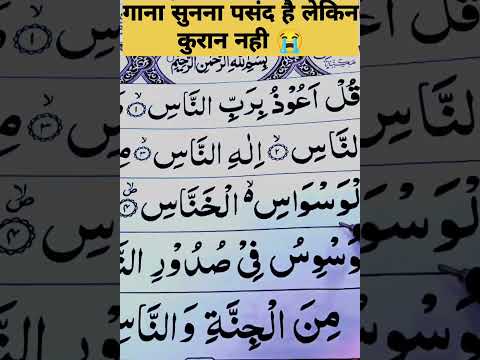 गाना सुनना पसंद है लेकिन
कुरान नही 😭
بِسْمِ اللهِ الرَّحْمٰنِ الرَّحِيْمِ
قُلْ اَعُوْذُ بِرَبِّ النَّاسِ ۙ﴿۱﴾
النَّاسِ ۙ﴿۲﴾ اِلٰهِ النَّاسِ ۙ﴿۳﴾
الْوَسْوَاسِ ۙ الْخَنَّاسِ ۙ﴿۴﴾
وَسْوِسُ فِيْ صُدُوْرِ
مِنَ الْجِنَّةِ وَالنَّاسِ